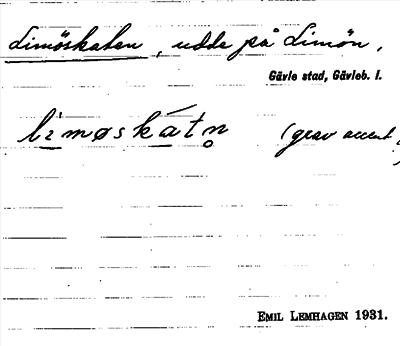 Limöskaten, udde på Limön,
Gävle stad, Gävleb. l.
li̱møská̱tn̥ (grav accent)
EMIL LEMHAGEN 1931.